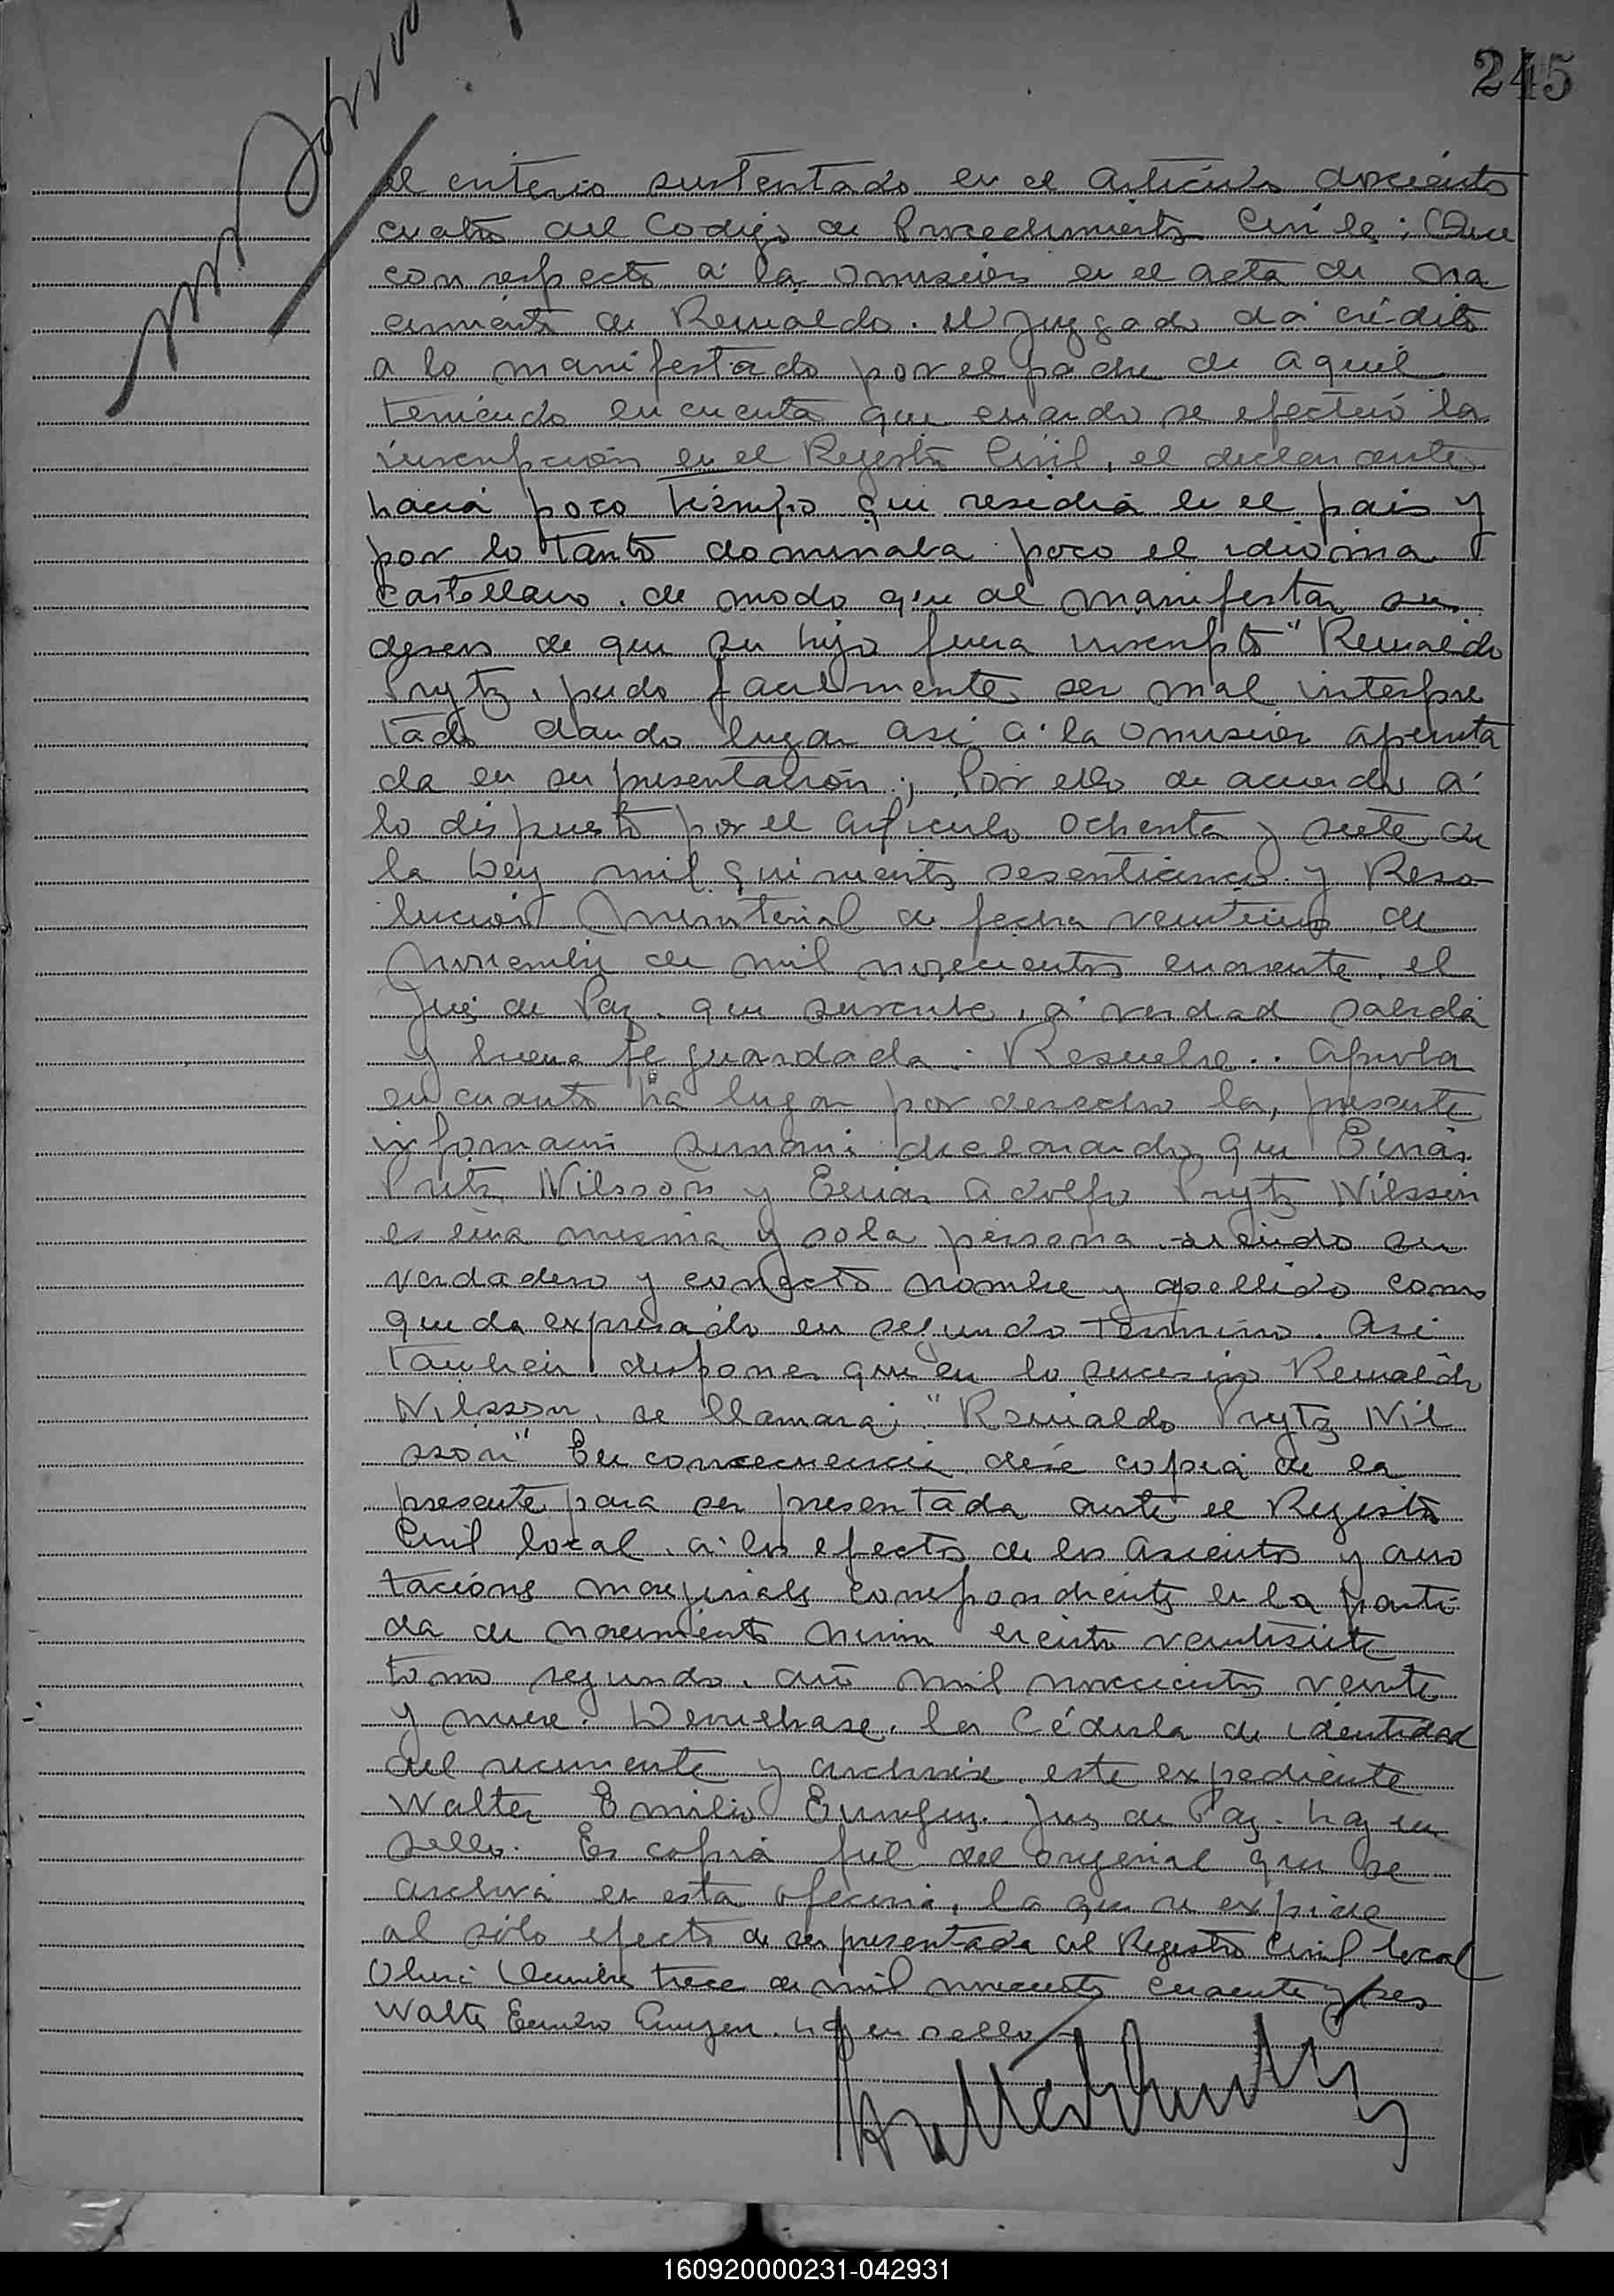 245
el criterio sustentado en el artículo docientos
cuatro del Codigo de Procedimientos Civiles; Que
con respecto a la omisión en el acta de na
cimiento de Reinaldo. el Juzgado dá crédito
a lo manifestado por el padre de aquel
teniendo en cuenta que cuando se efectuó la
inscripción en el Registro Civil, el declarante
hacia poco tiempo que residia en el pais y
por lo tanto dominaba poco el idioma
castellano. de modo que al manifestar su
deseo de que su hijo fuera inscripto "Reinaldo
Prytz, pudo facilmente ser mal interpre
tado dando lugar asi a la omision apunta
da en su presentación; Por ello de acuerdo a
lo dispuesto por el articulo ochenta y siete de
la Ley mil quinientos sesenticinco y Reso
lución Ministerial de fecha de
Noviembre de mil novecientos cuarenta, el
Juez de Paz. que suscribe, a verdad sabida
y buena fe guardada: Resuelve.. Aprobar
en cuanto ha lugar por derecho la, presente
información sumaria declarando que Einar
Pritz Nilsson y Einar Adolfo Prytz Nilsson
es una misma y sola persona siendo su
verdadero y correcto nombre y apellido como
queda expresado en segundo termino. Asi
tambien disponer que en lo sucesivo Reinaldo
Nilsson, se llamará; "Reinaldo Prytz Nil
sson" En consecuencia dése copia de la
presente para ser presentada ante el Registro
Civil local. a los efectos de los asientos y ano
taciones marginales correspondientes en la parti
da de nacimiento núm ciento veintisiete
tomo segundo. año mil novecientos veinte
y nueve. Devuelvase. la Cédula de identidad
del recurrente y archivese este expediente
Walter Emilio Juez de Paz. hay un
sello. Es copia fiel del original que se
archiva en esta oficina, la que se expide
al sólo efecto de ser presentada al Registro Civil local
Diciembre trece de mil novecientos cuarenta y tres
Walter Emilio hay un sello
160920000231-042931